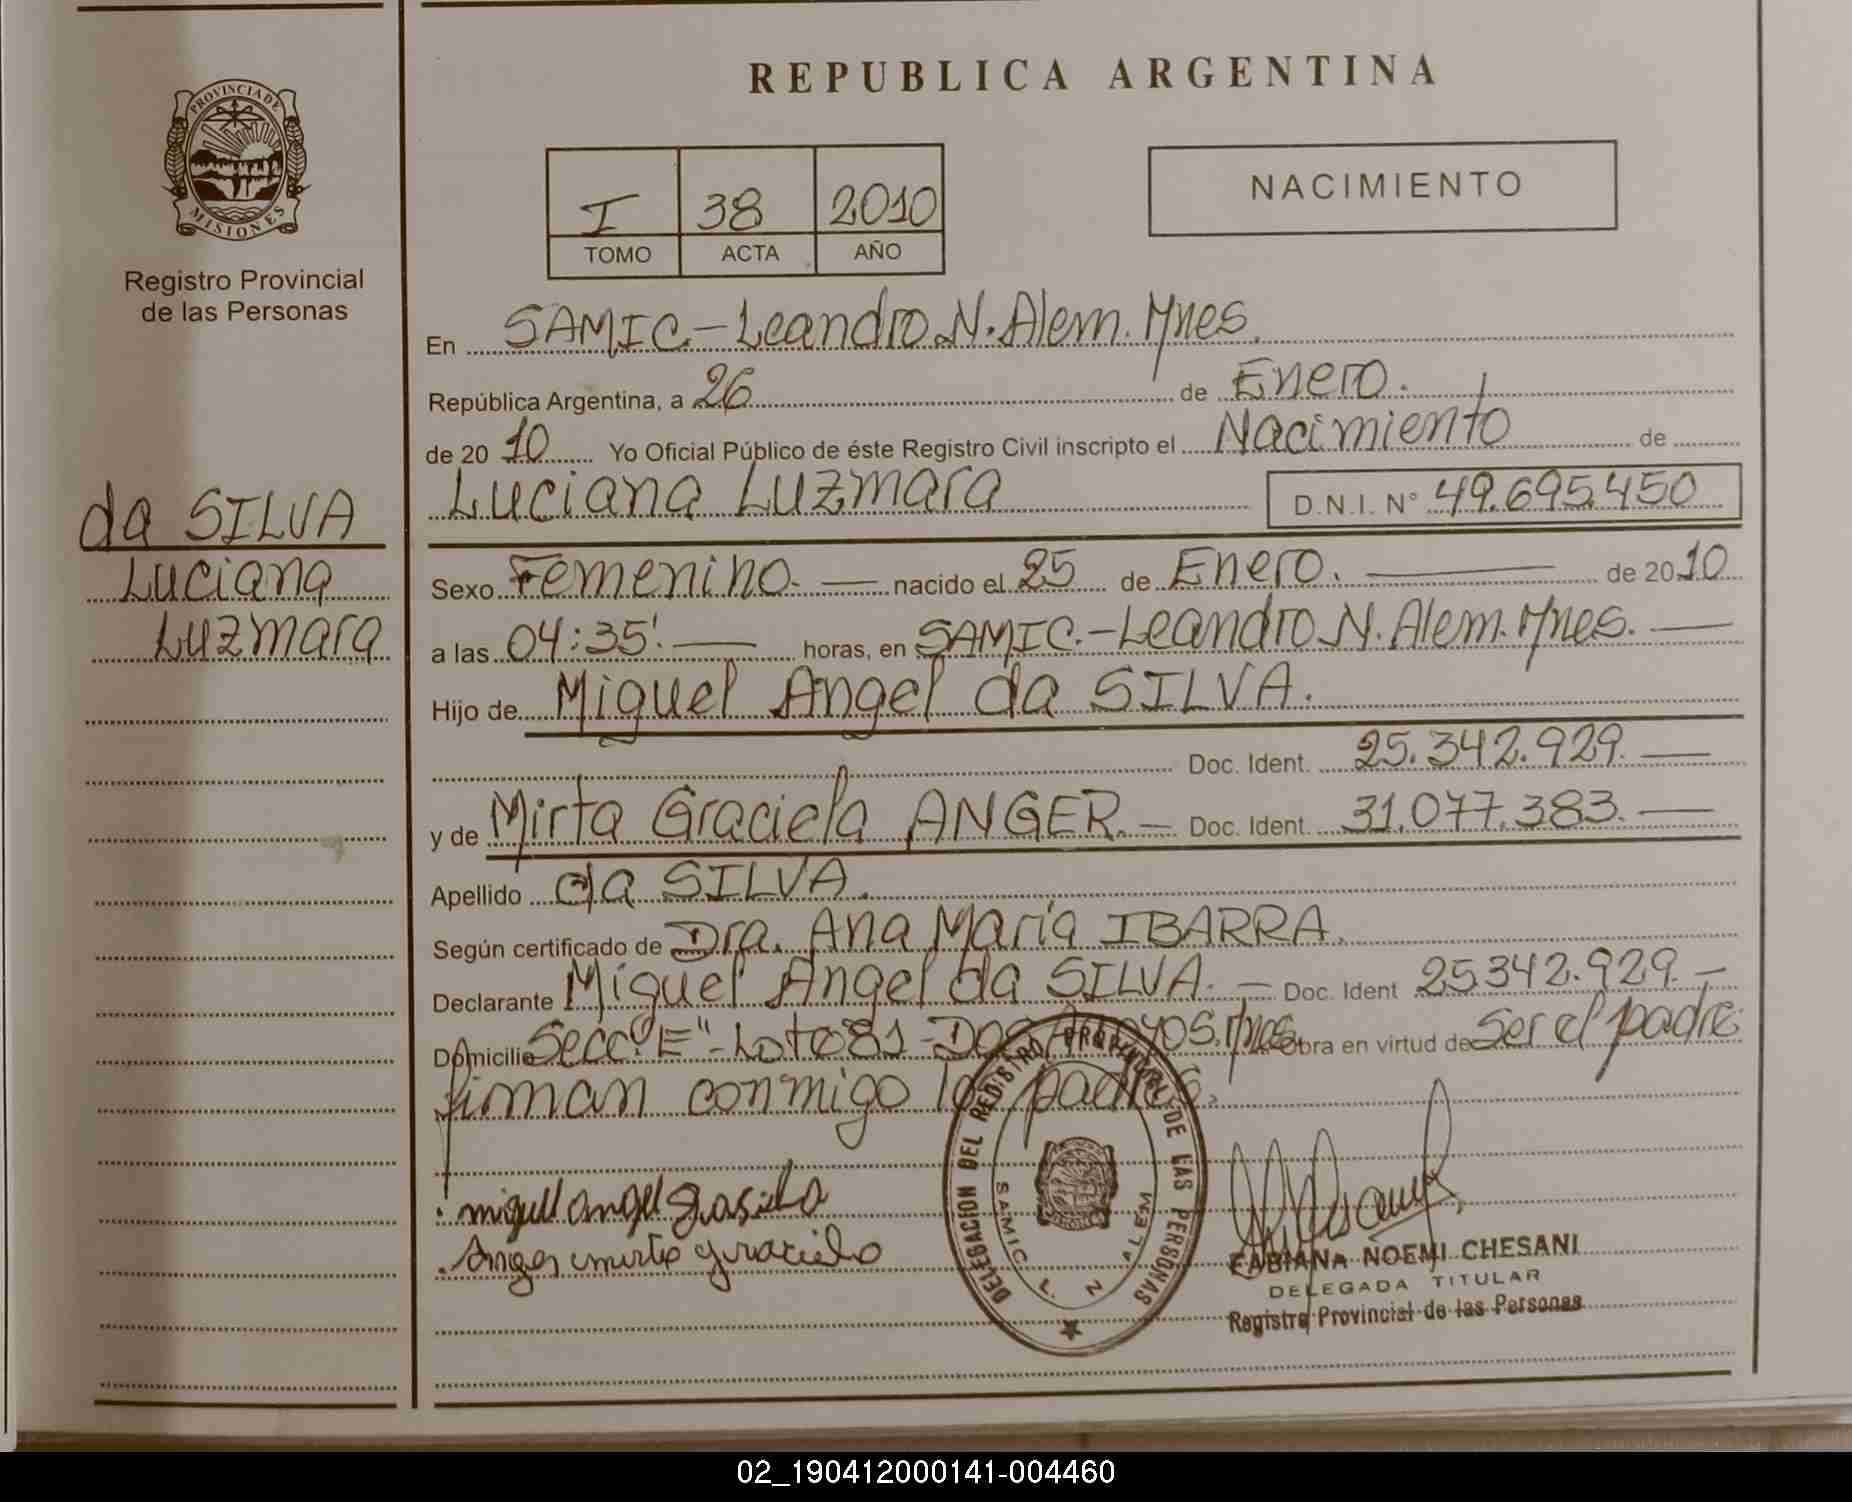 REPUBLICA ARGENTINA
PROVINCIA DE
MISIONES
Registro Provincial
de las Personas
I 38 2010
TOMO ACTA AÑO
NACIMIENTO
da SILVA
Luciana
Luzmara
En SAMIC.-Leandro N. Alem. Mnes.
República Argentina, a 26 de Enero.
de 2010 Yo Oficial Público de éste Registro Civil inscripto el Nacimiento de
Luciana Luzmara D.N.I. N° 49.695.450
Sexo Femenino. — nacido el 25 de Enero. — de 2010
a las 04:35'. — horas, en SAMIC.-Leandro N. Alem. Mnes. —
Hijo de Miguel Angel da SILVA.
Doc. Ident. 25.342.929. —
y de Mirta Graciela ANGER. — Doc. Ident. 31.077.383. —
Apellido da SILVA.
Según certificado de Dra. Ana María IBARRA.
Declarante Miguel Angel da SILVA. — Doc. Ident 25.342.929. —
Domicilio Secc. "E"-Lote 81-Dos Arroyos. Mnes. Obra en virtud de Ser el padre
firman conmigo los padres.
miguel angel dasilva
Anger mirta graciela
DELEGACION DEL REGISTRO PROVINCIAL DE LAS PERSONAS
SAMIC L. N. ALEM
FABIANA NOEMI CHESANI
DELEGADA TITULAR
Registro Provincial de las Personas
02_190412000141-004460